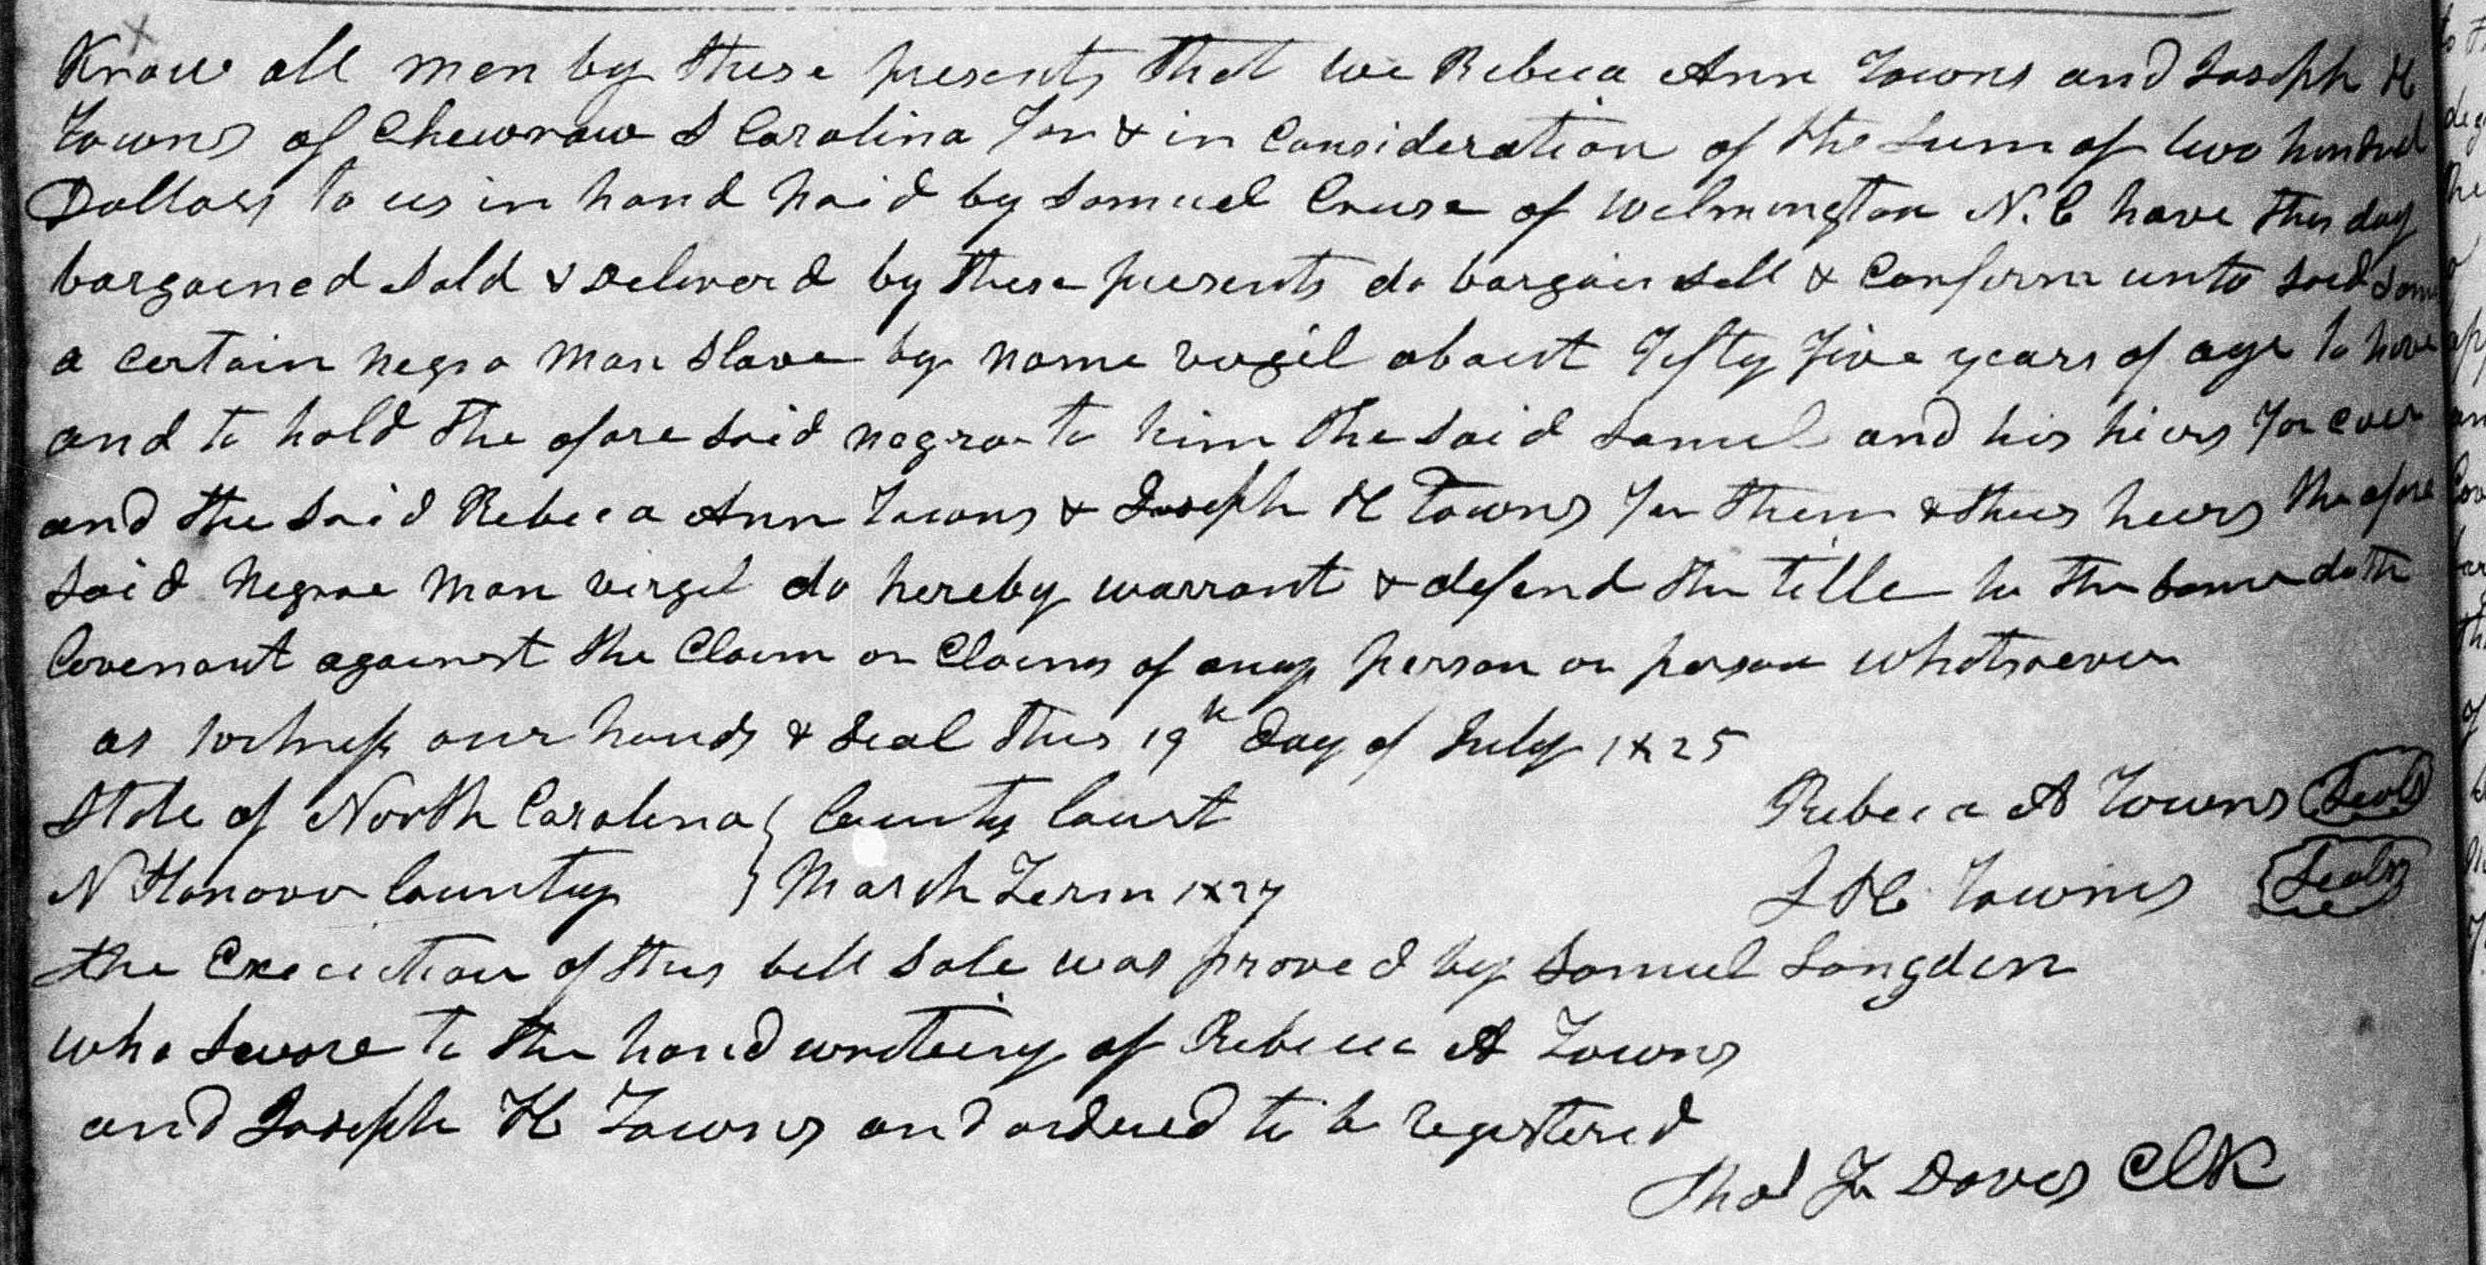 Know all men by these presents that we Rebeca Ann Towns and Joseph H
Towns of Chewraw S Carolina for & in Consideration of the Sum of two hundred
Dollars to us in hand paid by Samuel Cruse of Wilmington N.C have this day
bargained Sold & Delivered by these presents do bargain Sell & Confirm unto Said Sam
a certain negro man Slave by name virgil about fifty five years of age to have
and to hold the afore Said negro to him the Said Samuel and his hiers for ever
and the Said Rebeca Ann Towns & Joseph H Towns for them & their heirs the afore
Said Negroe man virgil do hereby warrant & defend the title to the Same doth
Covenant against the Claim or Claims of any person or person whatsoever
as witness our hands & Seal this 19th day of July 1825
Rebeca A Towns Seal
J H Towns Seal
State of North Carolina } County Court
N Hanover County } March Term 1827
the Execution of this bill Sale was proved by Samuel Langden
who Swore to the hand writeing of Rebecca A Towns
and Joseph H Towns and ordered to be registered
Thos F Davis Clk